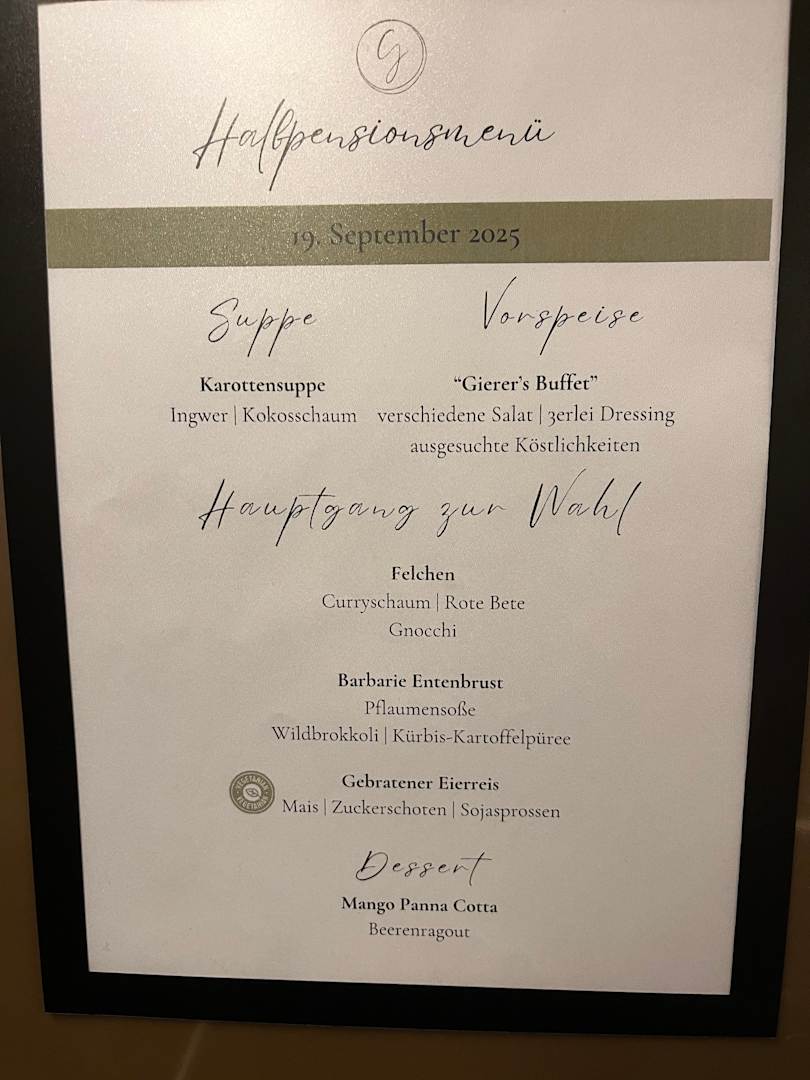 G
Halbpensionsmenü
19. September 2025
Suppe
Karottensuppe
Ingwer | Kokosschaum
Vorspeise
“Gierer’s Buffet”
verschiedene Salat | 3erlei Dressing
ausgesuchte Köstlichkeiten
Hauptgang zur Wahl
Felchen
Curryschaum | Rote Bete
Gnocchi
Barbarie Entenbrust
Pflaumensoße
Wildbrokkoli | Kürbis-Kartoffelpüree
VEGETARIAN
VEGETARIAN
Gebratener Eierreis
Mais | Zuckerschoten | Sojasprossen
Dessert
Mango Panna Cotta
Beerenragout